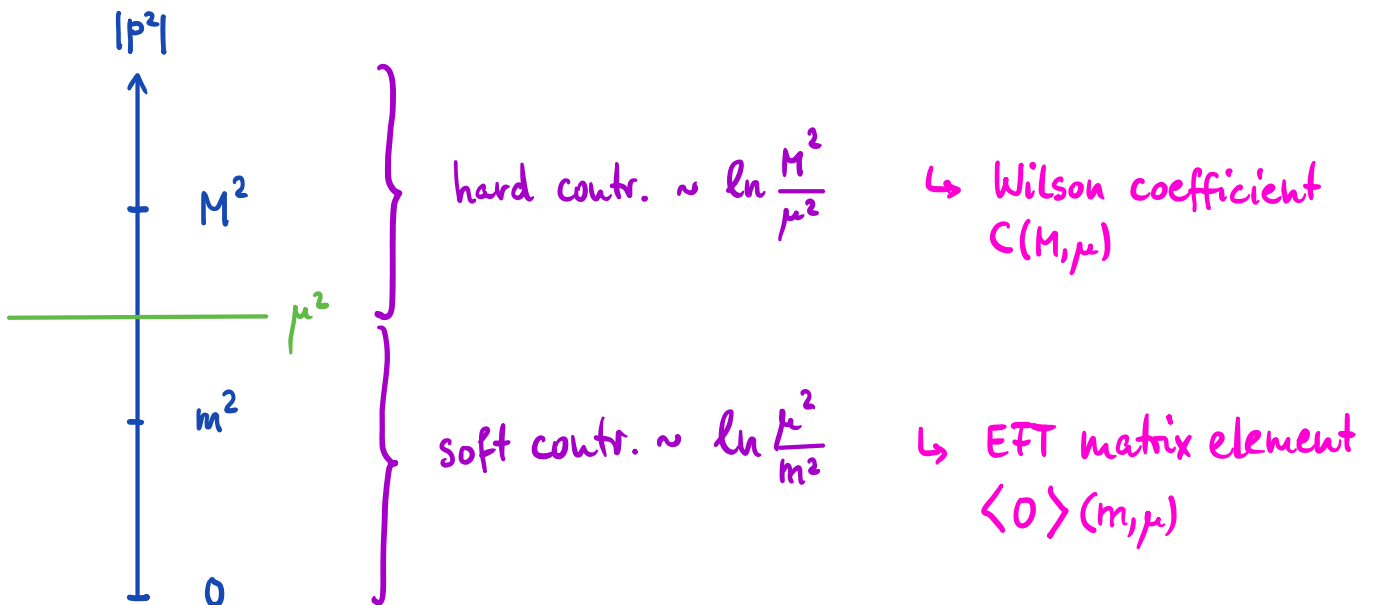 |p²|
M²
hard contr. ~ ln M²/μ² ↳ Wilson coefficient
C(M,μ)
μ²
m²
soft contr. ~ ln μ²/m² ↳ EFT matrix element
⟨O⟩(m,μ)
0